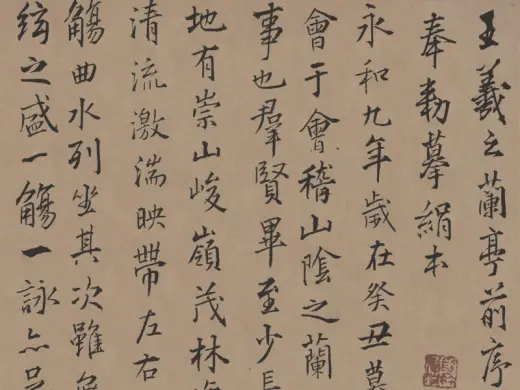 王羲之蘭亭前序
奉勅摹絹本
永和九年歲在癸丑暮
會于會稽山陰之蘭
事也羣賢畢至少長
地有崇山峻嶺茂林
清流激湍映帶左右
觴曲水列坐其次雖無
絃之盛一觴一詠亦足